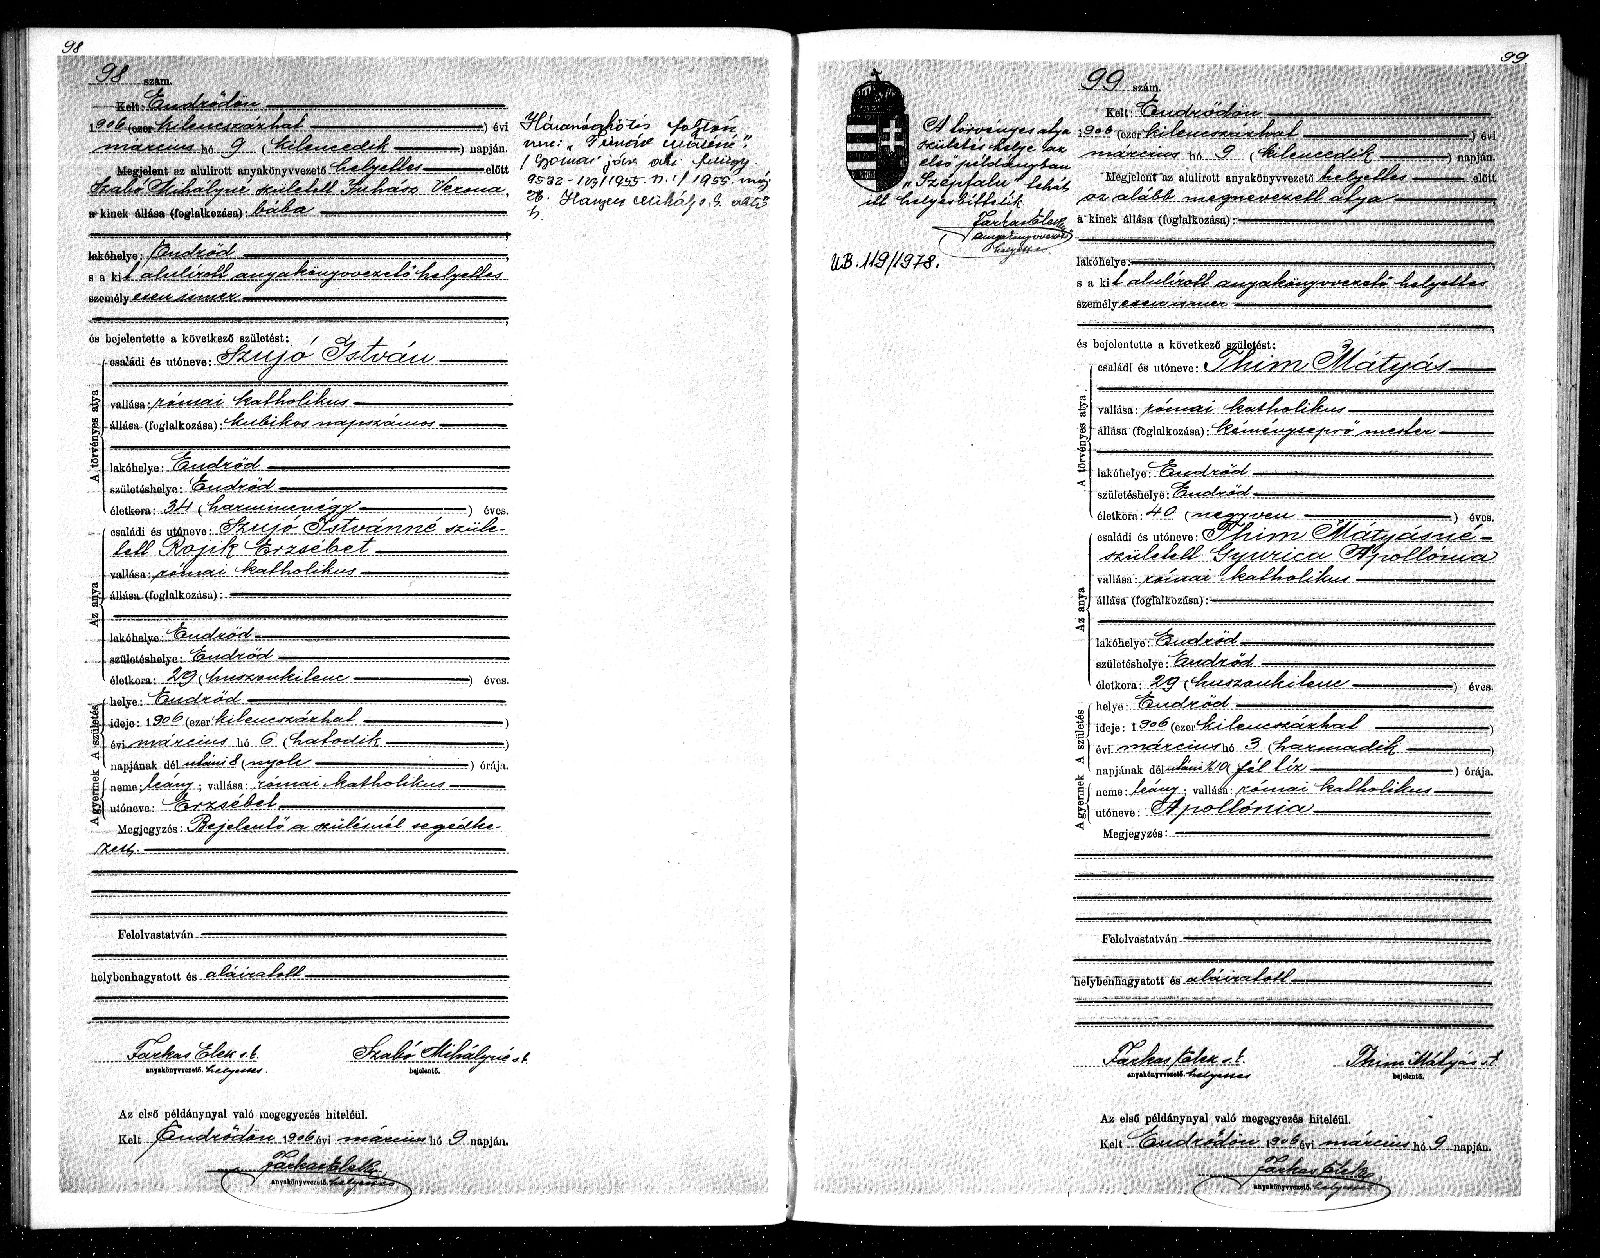 98
98 szám.
Kelt: Endrődön
1906 (ezer kilencszázhat) évi
március hó 9 (kilencedik) napján.
Megjelent az alulirott anyakönyvvezető helyettes előtt
Szabó Mihályné született Juhász Verona,
a kinek állása (foglalkozása): bába
lakóhelye: Endrőd
s a kit alulírott anyakönyvvezető helyettes
személyesen ismer
és bejelentette a következő születést:
A törvényes atya
családi és utóneve: Szujó István
vallása: római katholikus
állása (foglalkozása): kubikos napszámos
lakóhelye: Endrőd
születéshelye: Endrőd
életkora: 34 (harmincnégy) éves.
Az anya
családi és utóneve: Szujó Istvánné szüle-
tett Rojik Erzsébet
vallása: római katholikus
állása (foglalkozása):
lakóhelye: Endrőd
születéshelye: Endrőd
életkora: 29 (huszonkilenc) éves.
A születés
helye: Endrőd
ideje: 1906 (ezer kilencszázhat)
évi március hó 6 (hatodik)
napjának dél utáni 8 (nyolc) órája.
A gyermek
neme: leány; vallása: római katholikus
utóneve: Erzsébet
Megjegyzés: Bejelentő a szülésnél segédke-
zett.
Felolvastatván
helybenhagyatott és aláiratott
Farkas Elek s.k. Szabó Mihályné s.k.
anyakönyvvezető. helyettes. bejelentő.
Az első példánynyal való megegyezés hiteléül.
Kelt Endrődön 1906 évi március hó 9 napján.
Farkas Elek
anyakönyvvezető. helyettes
Házasságkötés folytán
9532-
1955
99
99 szám.
A törvényes atya
születés helye az
első példányban
"Szépfalu" tehát
itt helyesbíttetik
Farkas Elek
anyakönyvvezető
helyettes
UB. 119/1978.
Kelt: Endrődön
1906 (ezer kilencszázhat) évi
március hó 9 (kilencedik) napján.
Megjelent az alulirott anyakönyvvezető helyettes előtt
az alább megnevezett atya
a kinek állása (foglalkozása):
lakóhelye:
s a kit alulírott anyakönyvvezető helyettes
személyesen ismer
és bejelentette a következő születést:
A törvényes atya
családi és utóneve: Thim Mátyás
vallása: római katholikus
állása (foglalkozása): kéményseprő mester
lakóhelye: Endrőd
születéshelye: Endrőd
életkora: 40 (negyven) éves.
Az anya
családi és utóneve: Thim Mátyásné-
született Gyurica Apollónia
vallása: római katholikus
állása (foglalkozása):
lakóhelye: Endrőd
születéshelye: Endrőd
életkora: 29 (huszonkilenc) éves.
A születés
helye: Endrőd
ideje: 1906 (ezer kilencszázhat)
évi március hó 3 (harmadik)
napjának dél utáni ½10 (fél tíz) órája.
A gyermek
neme: leány; vallása: római katholikus
utóneve: Apollónia
Megjegyzés:
Felolvastatván
helybenhagyatott és aláiratott
Farkas Elek s.k. Thim Mátyás s.k.
anyakönyvvezető. helyettes bejelentő.
Az első példánynyal való megegyezés hiteléül.
Kelt Endrődön 1906 évi március hó 9 napján.
Farkas Elek
anyakönyvvezető. helyettes